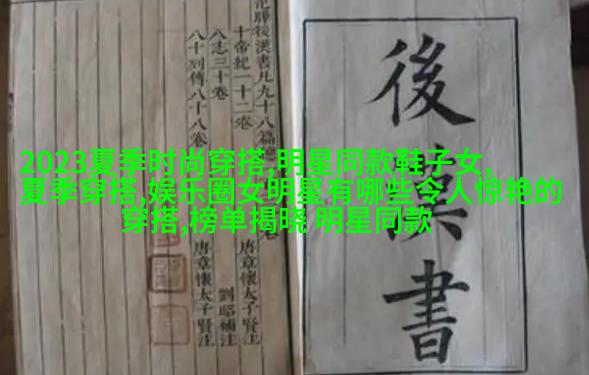 後漢書
范曄後漢書凡九十八篇
十帝紀一十二卷
八志三十卷
八十列傳八十八卷
唐章懷太子賢注
劉昭補注
唐章懷太子賢注
2023夏季时尚穿搭,明星同款鞋子女,
夏季穿搭,娱乐圈女明星有哪些令人惊艳的
穿搭,榜单揭晓 明星同款